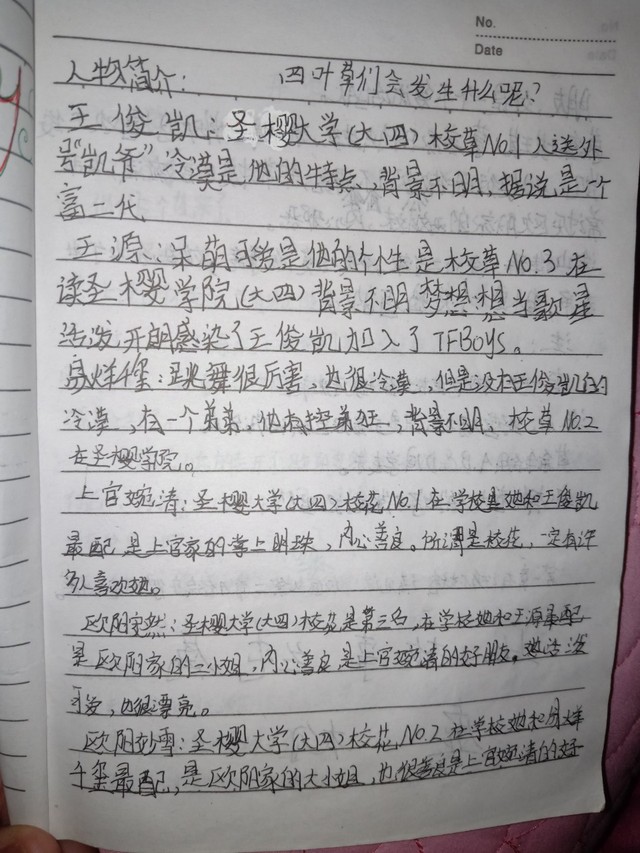 No.
Date
人物简介: 四叶草们会发生什么呢?
王俊凯:圣樱大学(大四)校草No.1人送外
号"凯爷"冷漠是他的特点、背景不明,据说是一个
富二代
王源:呆萌可爱是他的个生是校草No.3在
读圣樱学院(大四)背景不明 梦想想当歌星
活泼开朗感染了王俊凯加入了TFBoys。
易烊千玺:跳舞很厉害,也很冷漠,但是没有王俊凯的
冷漠,有一个弟弟,他有控弟狂,背景不明、校草No.2
在圣樱学院。
上官婉清:圣樱大学(大四)校花No.1在学校是她和王俊凯
最配,是上官家的掌上明珠,内心善良。所谓是校花,一定有许
多人喜欢她。
欧阳安然:圣樱大学(大四)校花是第三名,在学校她和王源最配
是欧阳家的二小姐,内心善良是上官婉清的好朋友。她活泼
可爱,也很漂亮。
欧阳妙雪:圣樱大学(大四)校花No.2在学校她和易烊
千玺最配,是欧阳家的大小姐,也很善良是上官婉清的好